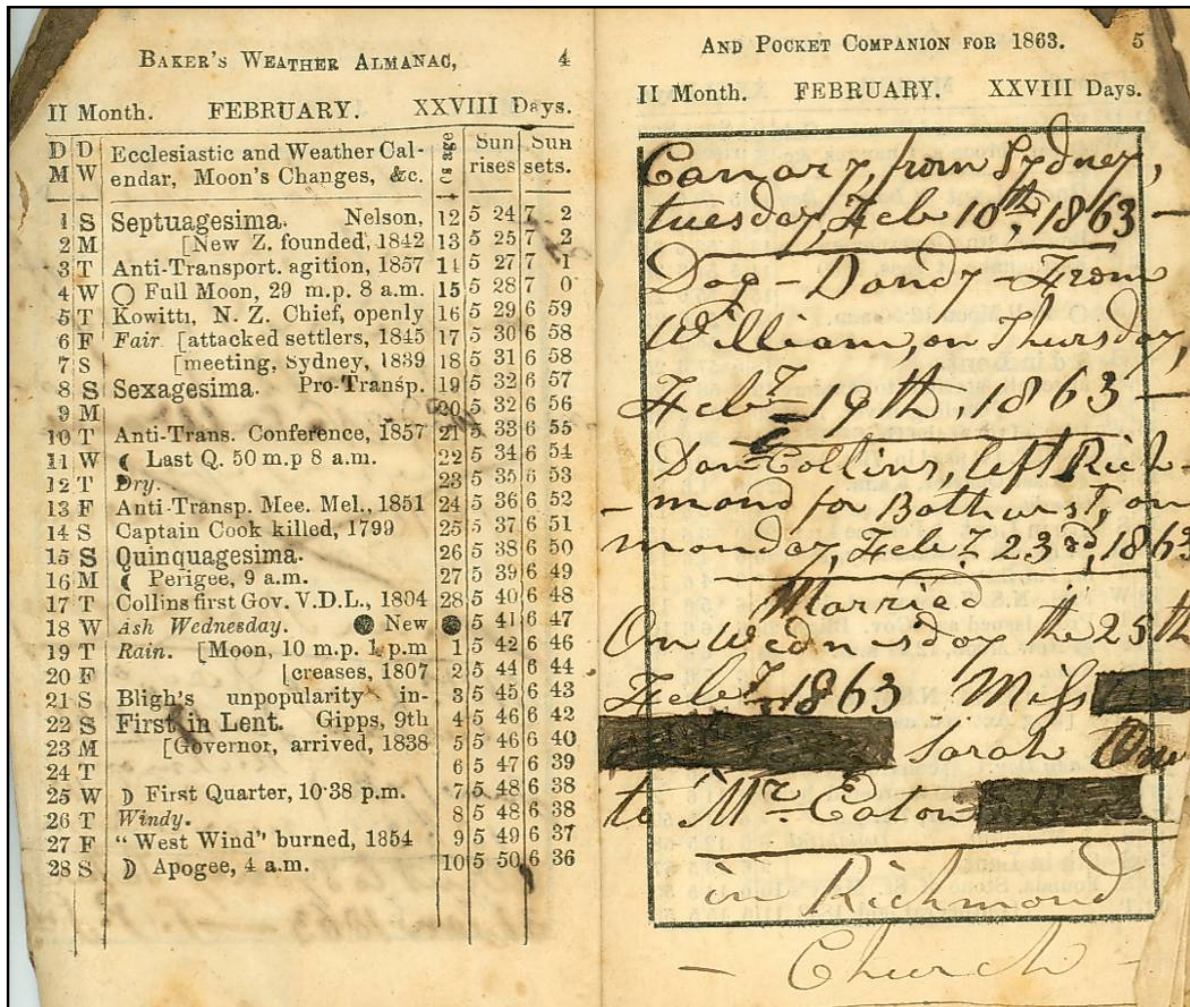 BAKER'S WEATHER ALMANAC, 4
II Month. FEBRUARY. XXVIII Days.
D D Ecclesiastic and Weather Cal- ☾'s age Sun Sun
M W endar, Moon's Changes, &c. rises sets.
1 S Septuagesima. Nelson, 12 5 24 7 2
2 M [New Z. founded, 1842 13 5 25 7 2
3 T Anti-Transport. agition, 1857 14 5 27 7 1
4 W ○ Full Moon, 29 m.p. 8 a.m. 15 5 28 7 0
5 T Kowitti, N. Z. Chief, openly 16 5 29 6 59
6 F Fair [attacked settlers, 1845 17 5 30 6 58
7 S [meeting, Sydney, 1839 18 5 31 6 58
8 S Sexagesima. Pro-Transp. 19 5 32 6 57
9 M 20 5 32 6 56
10 T Anti-Trans. Conference, 1857 21 5 33 6 55
11 W ☾ Last Q. 50 m.p 8 a.m. 22 5 34 6 54
12 T Dry. 23 5 35 6 53
13 F Anti-Transp. Mee. Mel., 1851 24 5 36 6 52
14 S Captain Cook killed, 1799 25 5 37 6 51
15 S Quinquagesima. 26 5 38 6 50
16 M ☾ Perigee, 9 a.m. 27 5 39 6 49
17 T Collins first Gov. V.D.L., 1804 28 5 40 6 48
18 W Ash Wednesday. ● New ● 5 41 6 47
19 T Rain. [Moon, 10 m.p. 1 p.m 1 5 42 6 46
20 F [creases, 1807 2 5 44 6 44
21 S Bligh's unpopularity in- 3 5 45 6 43
22 S First in Lent. Gipps, 9th 4 5 46 6 42
23 M [Governor, arrived, 1838 5 5 46 6 40
24 T 6 5 47 6 39
25 W ☽ First Quarter, 10·38 p.m. 7 5 48 6 38
26 T Windy. 8 5 48 6 38
27 F "West Wind" burned, 1854 9 5 49 6 37
28 S ☽ Apogee, 4 a.m. 10 5 50 6 36
AND POCKET COMPANION FOR 1863. 5
II Month. FEBRUARY. XXVIII Days.
Canary, from Sydney,
tuesday, Feb 10th, 1863 —
Dog - Dandy - From
William, on Thursday,
Feby 19th, 1863 —
Dan Collins, left Rich-
- mond for Bathurst, on
monday, Feby 23rd, 1863
Married
On Wednesday the 25th
Feby, 1863 Miss
Sarah
to Mr Eaton
in Richmond
- Church -